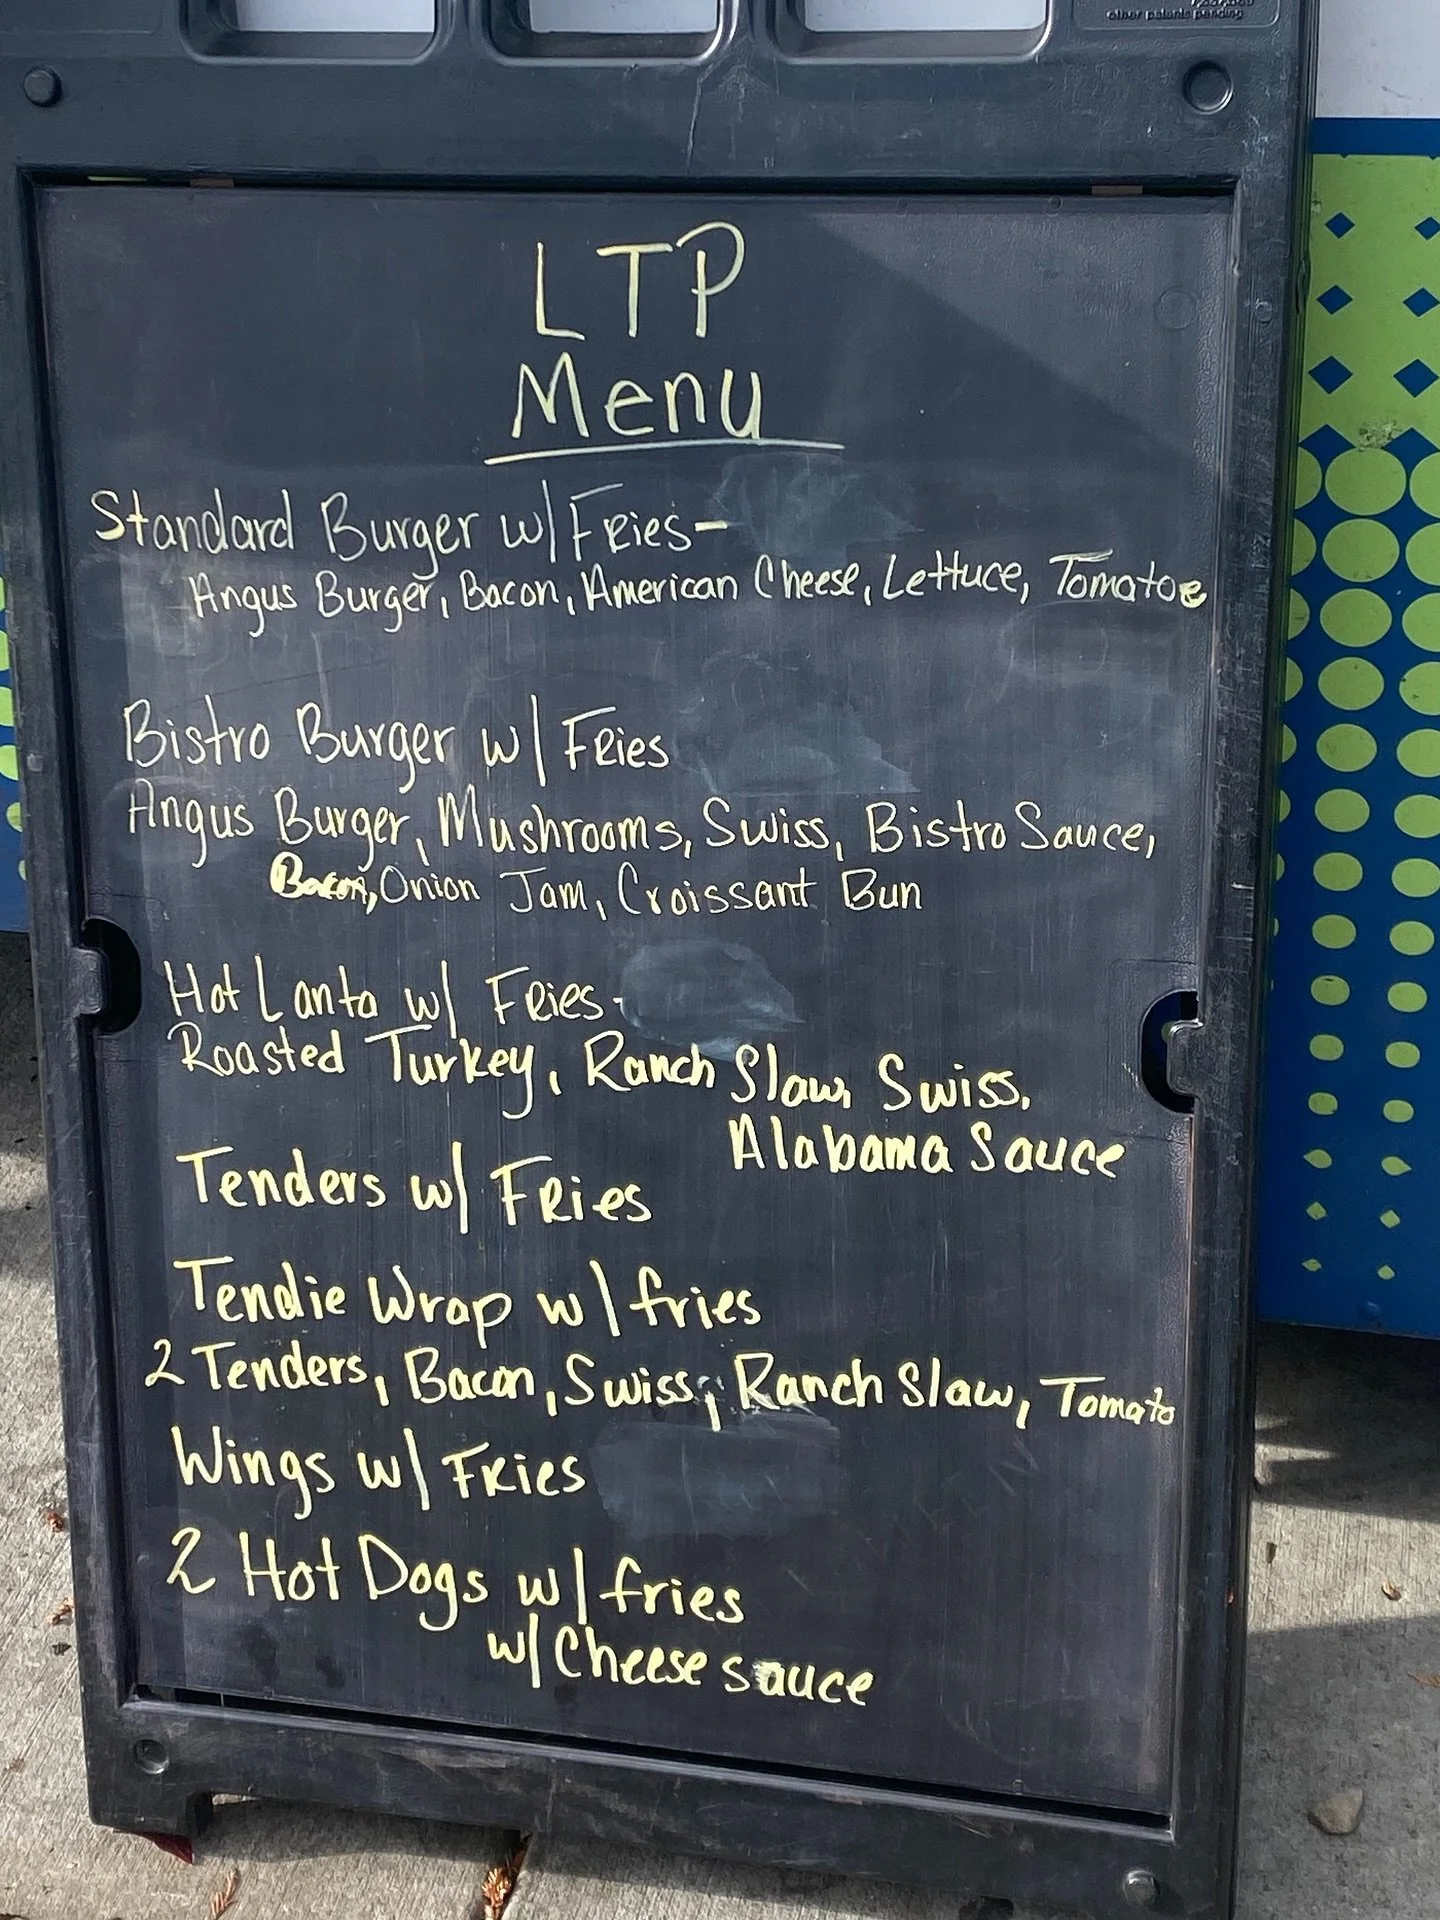 other patents pending
LTP
Menu
Standard Burger w/ Fries-
Angus Burger, Bacon, American Cheese, Lettuce, Tomatoe
Bistro Burger w/ Fries
Angus Burger, Mushrooms, Swiss, Bistro Sauce,
Bacon, Onion Jam, Croissant Bun
Hot Lanta w/ Fries-
Roasted Turkey, Ranch Slaw, Swiss,
Alabama Sauce
Tenders w/ Fries
Tendie Wrap w/ fries
2 Tenders, Bacon, Swiss, Ranch Slaw, Tomato
Wings w/ Fries
2 Hot Dogs w/ fries
w/ Cheese sauce